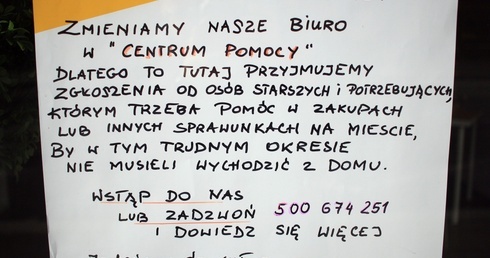 ZMIENIAMY NASZE BIURO
W "CENTRUM POMOCY"
DLATEGO TO TUTAJ PRZYJMUJEMY
ZGŁOSZENIA OD OSÓB STARSZYCH i POTRZEBUJĄCYCH,
KTÓRYM TRZEBA POMÓC W ZAKUPACH
LUB INNYCH SPRAWUNKACH NA MIEŚCIE,
BY W TYM TRUDNYM OKRESIE
NIE MUSIELI WYCHODZIĆ Z DOMU.
WSTĄP DO NAS
LUB ZADZWOŃ 500 674 251
I DOWIEDZ SIĘ WIĘCEJ